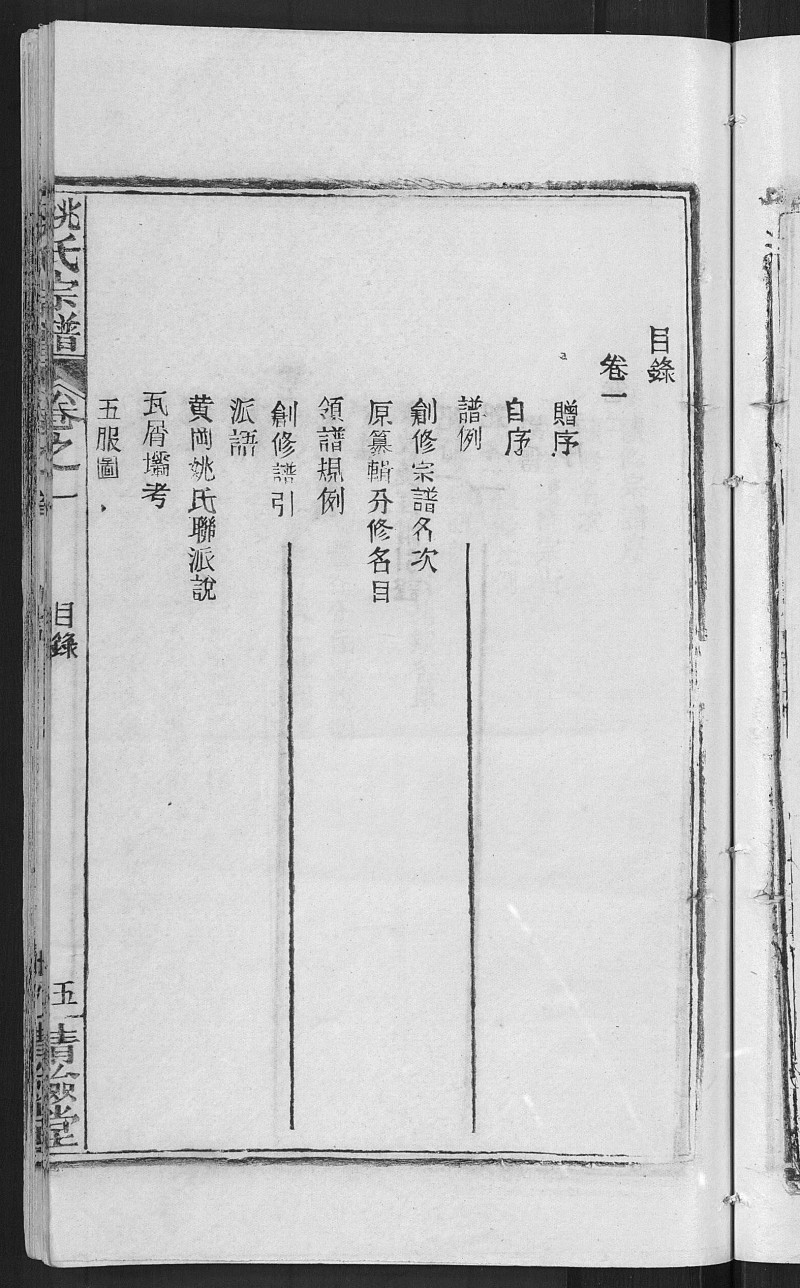 目錄
卷一
贈序
自序
譜例
創修宗譜名次
原纂輯分修名目
領譜規例
創修譜引
派語
黃岡姚氏聯派說
瓦屑壩考
五服圖
姚氏宗譜
卷之一
目錄
五
清儉堂